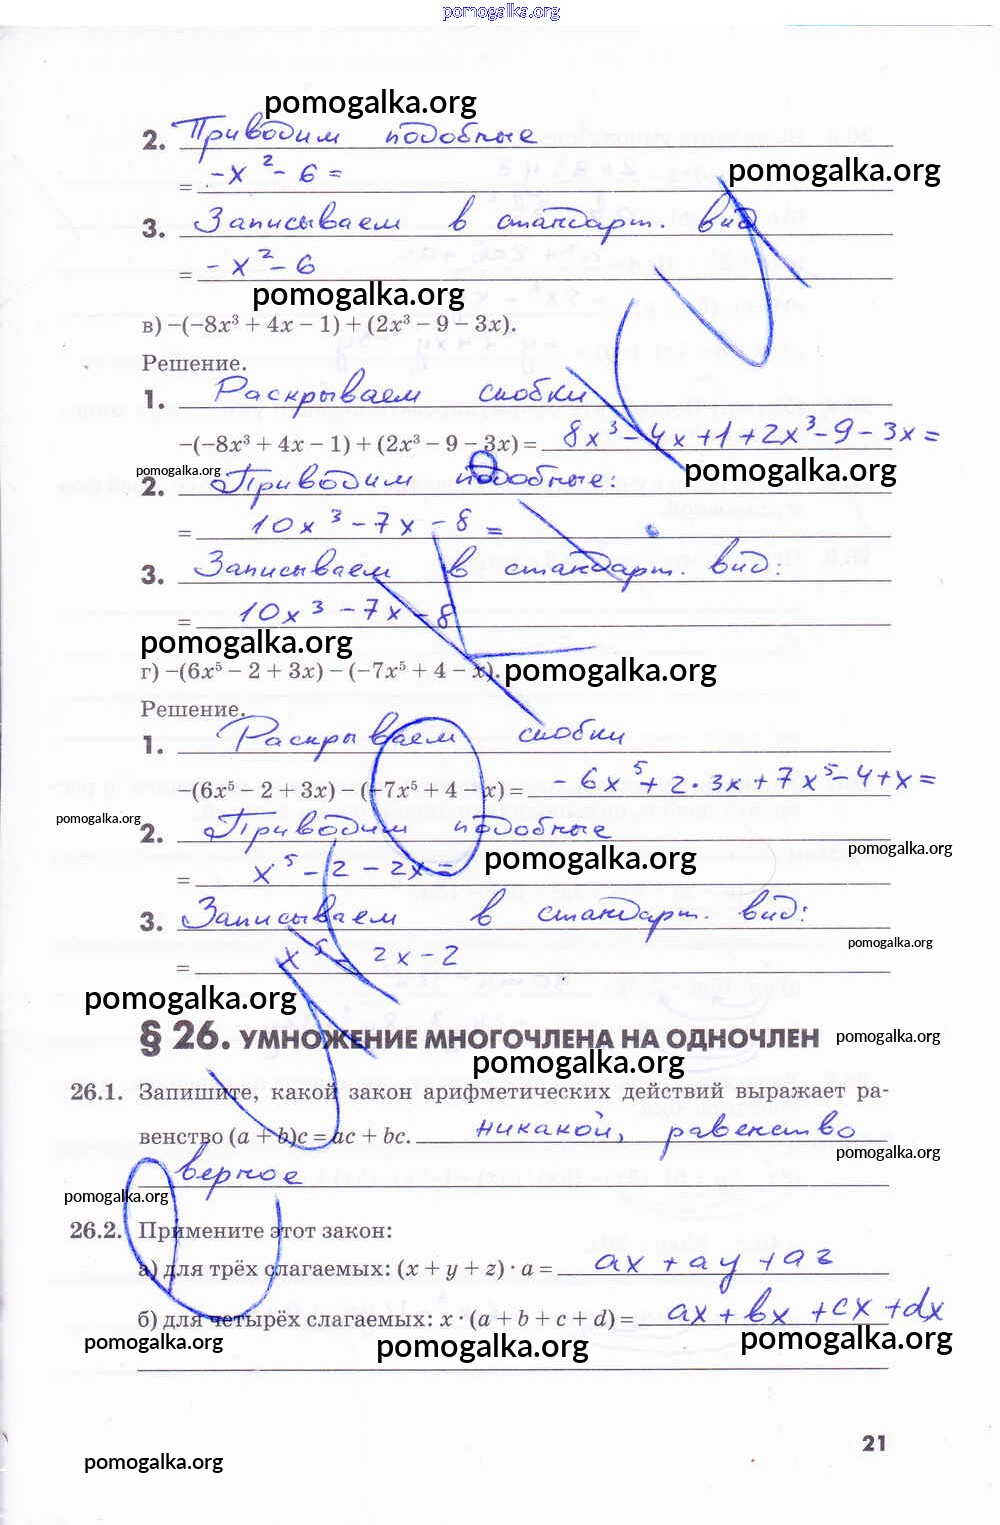 pomogalka.org
pomogalka.org
2. Приводим подобные
= -x² - 6 =
pomogalka.org
3. Записываем в стандарт. вид
= -x² - 6
pomogalka.org
в) –(–8x³ + 4x – 1) + (2x³ – 9 – 3x).
Решение.
1. Раскрываем скобки
–(–8x³ + 4x – 1) + (2x³ – 9 – 3x) = 8x³ - 4x + 1 + 2x³ - 9 - 3x =
pomogalka.org pomogalka.org
2. Приводим подобные:
= 10x³ - 7x - 8 =
3. Записываем в стандарт. вид:
= 10x³ - 7x - 8
pomogalka.org
г) –(6x⁵ – 2 + 3x) – (–7x⁵ + 4 – x). pomogalka.org
Решение.
1. Раскрываем скобки
–(6x⁵ – 2 + 3x) – (–7x⁵ + 4 – x) = - 6x⁵ + 2 · 3x + 7x⁵ - 4 + x =
pomogalka.org
2. Приводим подобные
pomogalka.org pomogalka.org
= x⁵ - 2 - 2x =
3. Записываем в стандарт. вид:
pomogalka.org
= x⁵ - 2x - 2
pomogalka.org
§ 26. УМНОЖЕНИЕ МНОГОЧЛЕНА НА ОДНОЧЛЕН
pomogalka.org
pomogalka.org
26.1. Запишите, какой закон арифметических действий выражает ра-
венство (a + b)c = ac + bc. никакой, равенство
pomogalka.org
верное
pomogalka.org
26.2. Примените этот закон:
а) для трёх слагаемых: (x + y + z) · a = ax + ay + az
б) для четырёх слагаемых: x · (a + b + c + d) = ax + bx + cx + dx
pomogalka.org pomogalka.org pomogalka.org
21
pomogalka.org